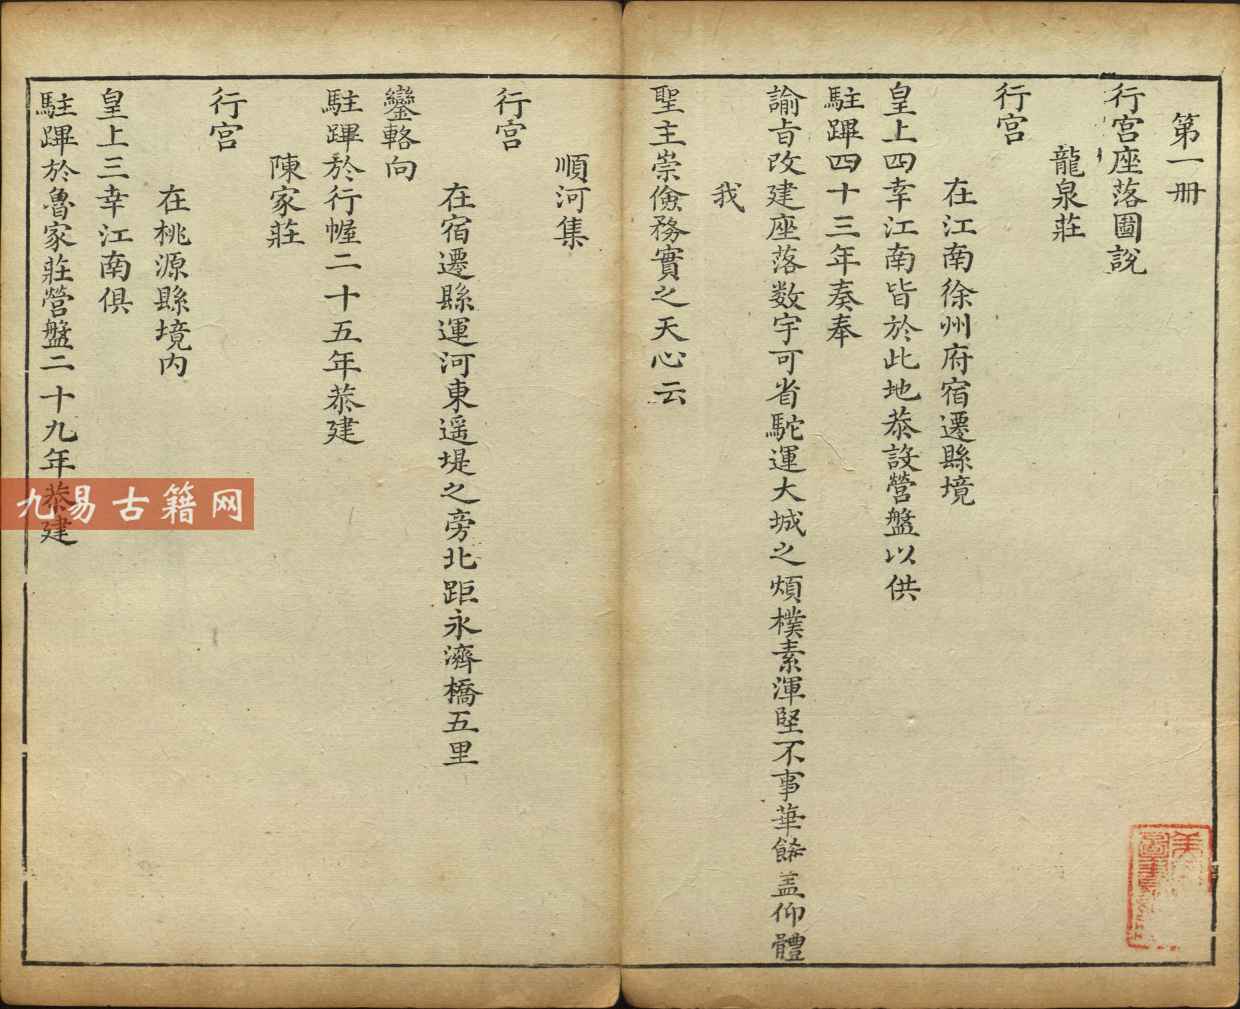 第一册
行宫座落圖說
龍泉莊
行宫
在江南徐州府宿遷縣境
皇上四幸江南皆於此地恭設營盤以供
駐蹕四十三年奏奉
諭旨改建座落数宇可省駝運大城之煩樸素渾堅不事華餙盖仰體
我
聖主崇儉務實之天心云
順河集
行宫
在宿遷縣運河東遥堤之旁北距永濟橋五里
鑾輅向
駐蹕於行幄二十五年恭建
陳家莊
行宫
在桃源縣境内
皇上三幸江南俱
駐蹕於魯家莊營盤二十九年恭建
九易古籍网